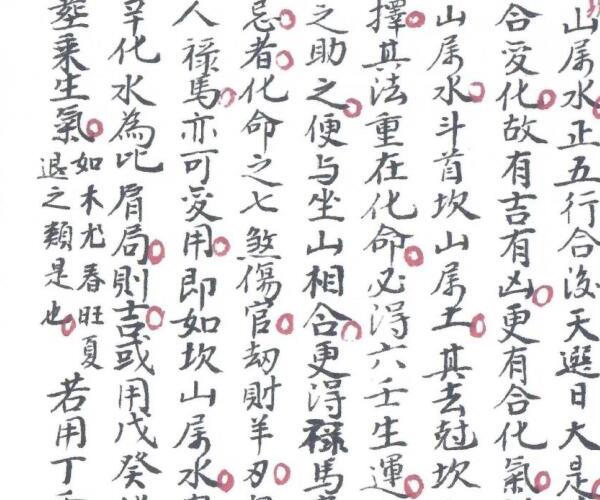 山屬水正五行合後天選日大是
合受化故有吉有凶更有合化氣
山屬水斗首坎山屬土其去尅坎
擇其法重在化命必得六壬生運
之助之便与坐山相合更得祿馬
忌者化命之七煞傷官劫財羊刃
人祿馬亦可受用即如坎山屬水
辛化水為比肩局則吉或用戊癸
乘生氣如木尤春旺夏
退之類是也若用丁